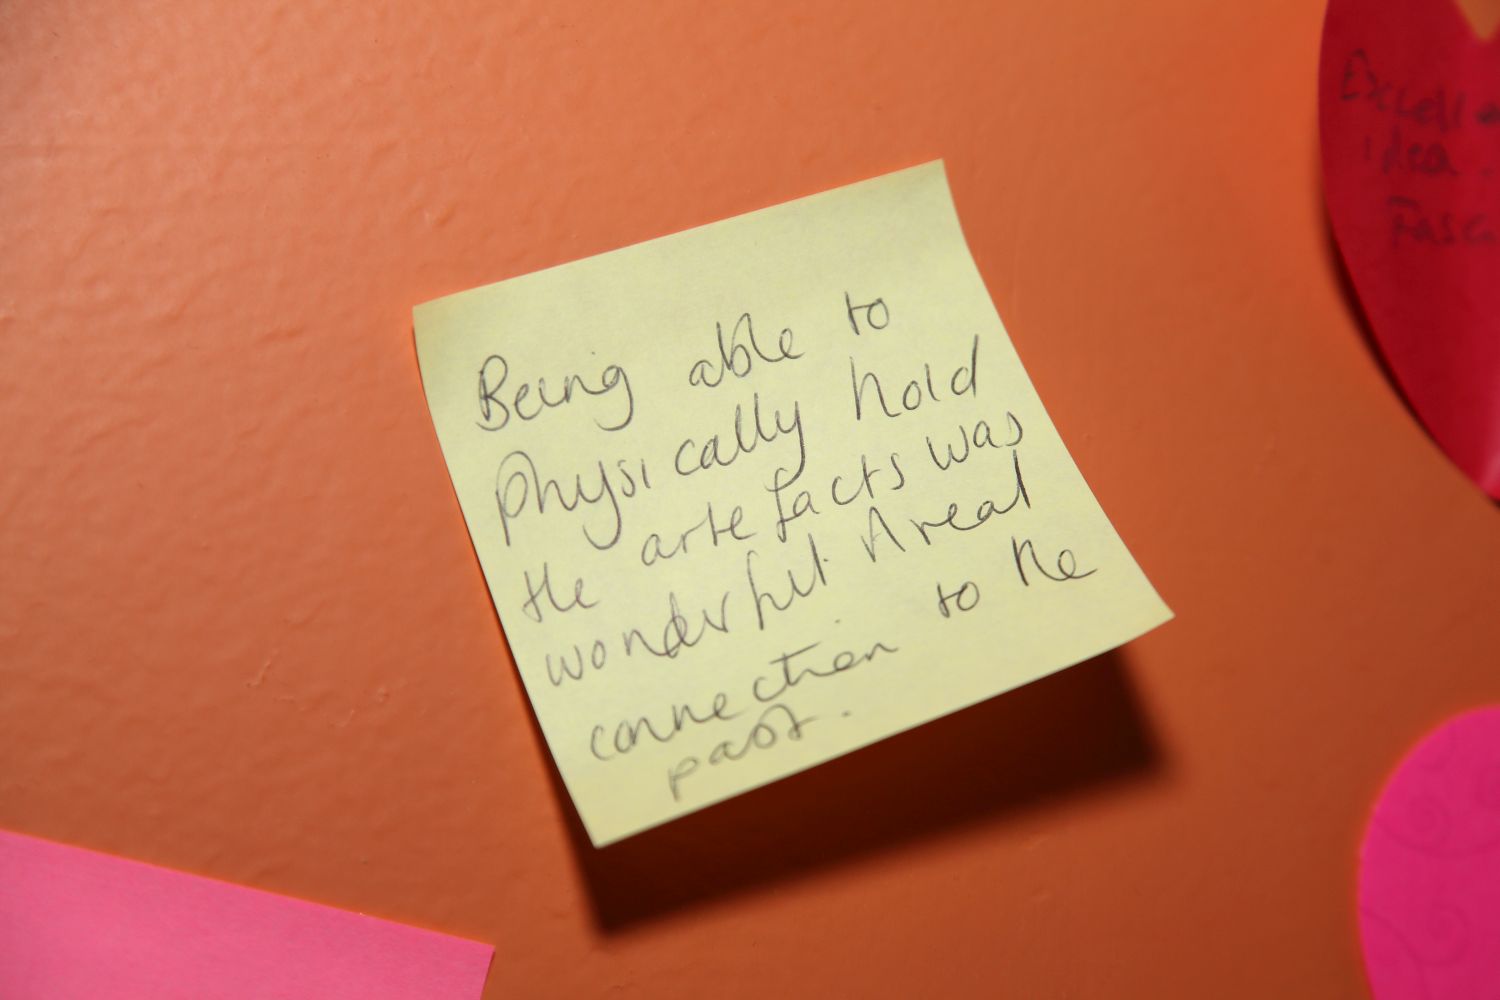 Being able to
physically hold
the artefacts was
wonderful. A real
connection to the
past.
Excell
idea
Fasc